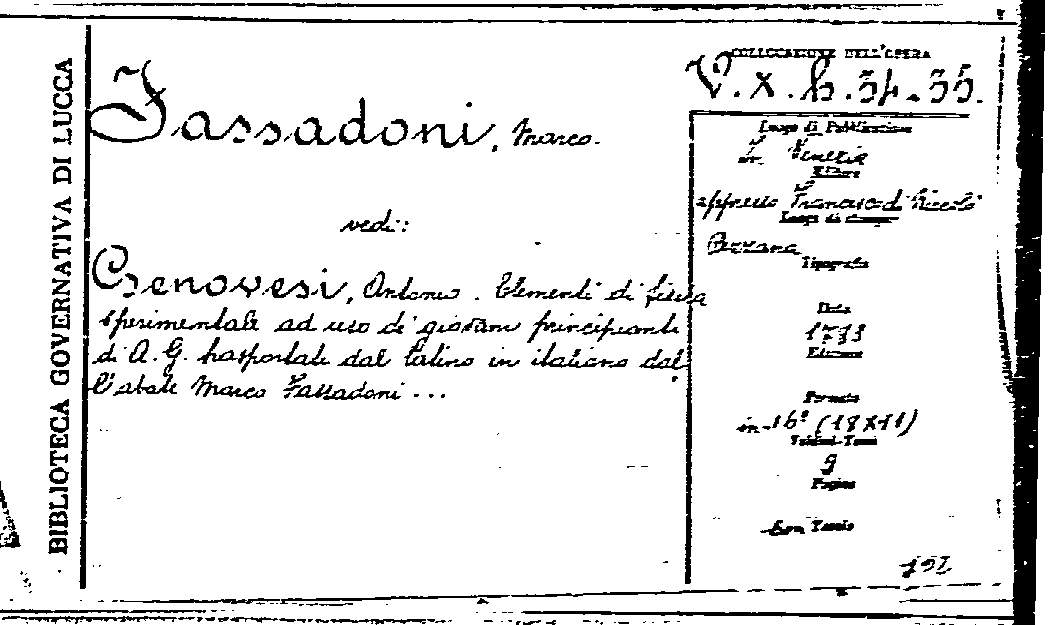 BIBLIOTECA GOVERNATIVA DI LUCCA
Fassadoni, Marco.
vedi:
Genovesi, Antonio. Elementi di fisica
sperimentale ad uso de' giovani principianti
di A. G. trasportati dal latino in italiano dal
l'abate Marco Fassadoni ...
COLLOCAZIONE DELL'OPERA
V. X. h. 34-35.
Luogo di Pubblicazione
In Venezia
Editore
appresso Francesco di Niccolò
Luogo di stampa
Pezzana
Tipografia
Data
Edizione
Formato
in-16° (18X11)
Volumi-Tomi
Pagine
Con Tavole